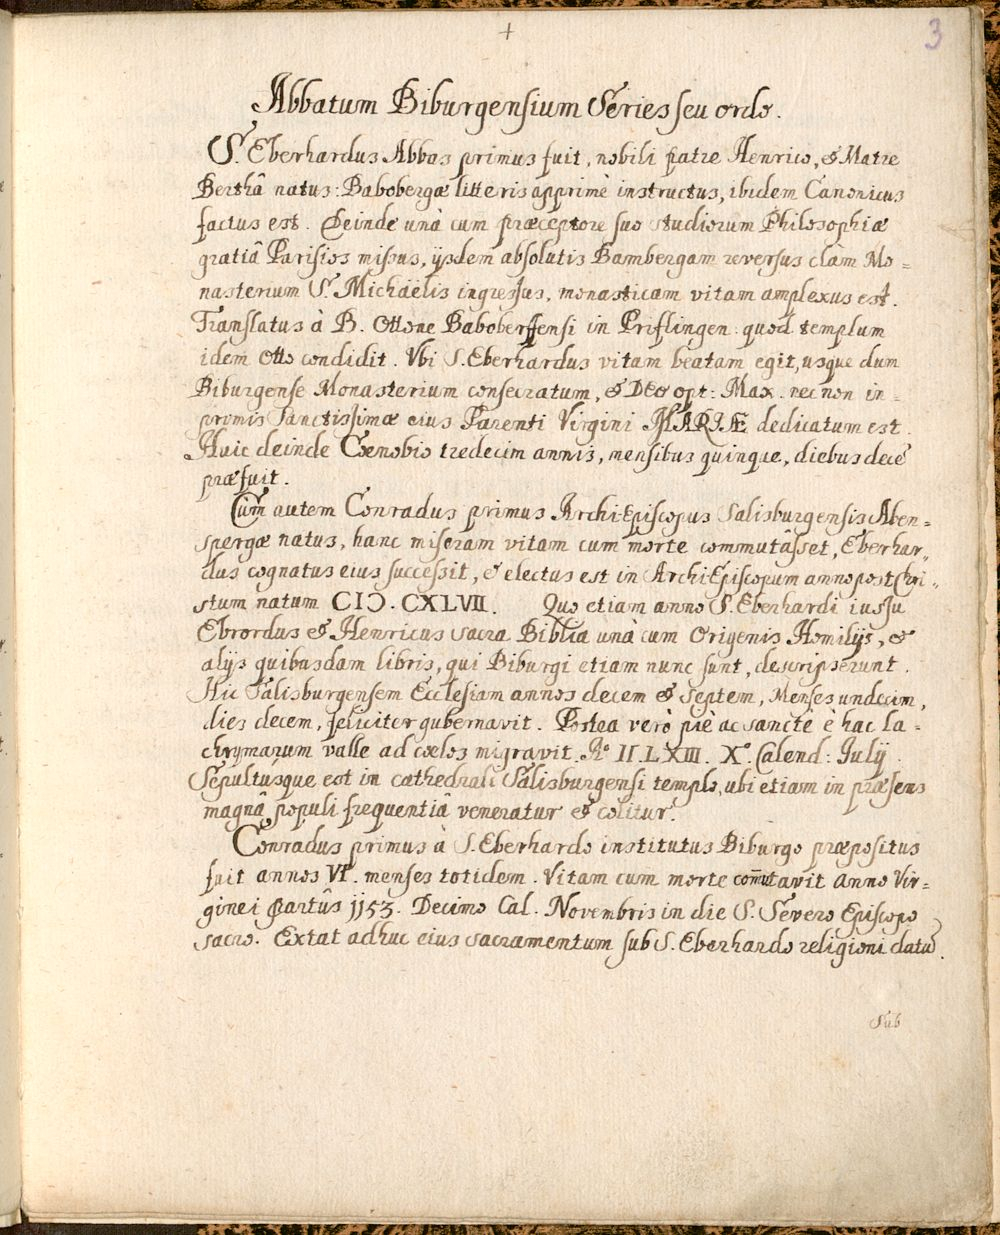 3
Abbatum Biburgensium Series seu ordo.
S. Eberhardus Abbas primus fuit, nobili patre Henrico, & Matre
Berthâ natus: Babobergæ litteris apprimè instructus, ibidem Canonicus
factus est. Deinde unà cum præceptore suo studiorum Philosophiæ
gratiâ Parisios missus, ijsdem absolutis Bambergam reversus clàm Mo=
nasterium S. Michaëlis ingressus, monasticam vitam amplexus est.
Translatus à B. Ottone Baboberffensi in Priflingen: quod templum
idem Otto condidit. Vbi S. Eberhardus vitam beatam egit, usque dum
Biburgense Monasterium consecratum, & DEo opt: Max. nec non in=
primis Sanctissimæ eius Parenti Virgini MARIÆ dedicatum est.
Huic deinde Cænobio tredecim annis, mensibus quinque, diebus decē
præfuit.
Cùm autem Conradus primus ArchiEpiscopus Salisburgensis Aben=
spergæ natus, hanc miseram vitam cum morte commutâsset, Eberhar=
dus cognatus eius successit, & electus est in ArchiEpiscopum anno post Chri=
stum natum CIƆ. CXLVII. Quo etiam anno S. Eberhardi iussu
Ebrordus & Henricus sacra Biblia unà cum Origenis Homilijs, &
alijs quibusdam libris, qui Biburgi etiam nunc sunt, descripserunt.
Hic Salisburgensem Ecclesiam annos decem & septem, Menses undecim,
dies decem, feliciter gubernavit. Postea verò pie ac sanctè è hac la=
chrymarum valle ad cælos migravit. Aº II.LXIII. Xº. Calend: Julij.
Sepultusque est in cathedrali Salisburgensi templo, ubi etiam in præsens
magnâ populi frequentiâ veneratur & colitur.
Conradus primus à S. Eberhardo institutus Biburgo præpositus
fuit annos VI. menses totidem. Vitam cum morte com̄utavit Anno Vir=
ginei partûs 1153. Decimo Cal. Novembris in die S. Severo Episcopo
sacro. Extat adhuc eius sacramentum sub S. Eberhardo religioni datū.
Sub